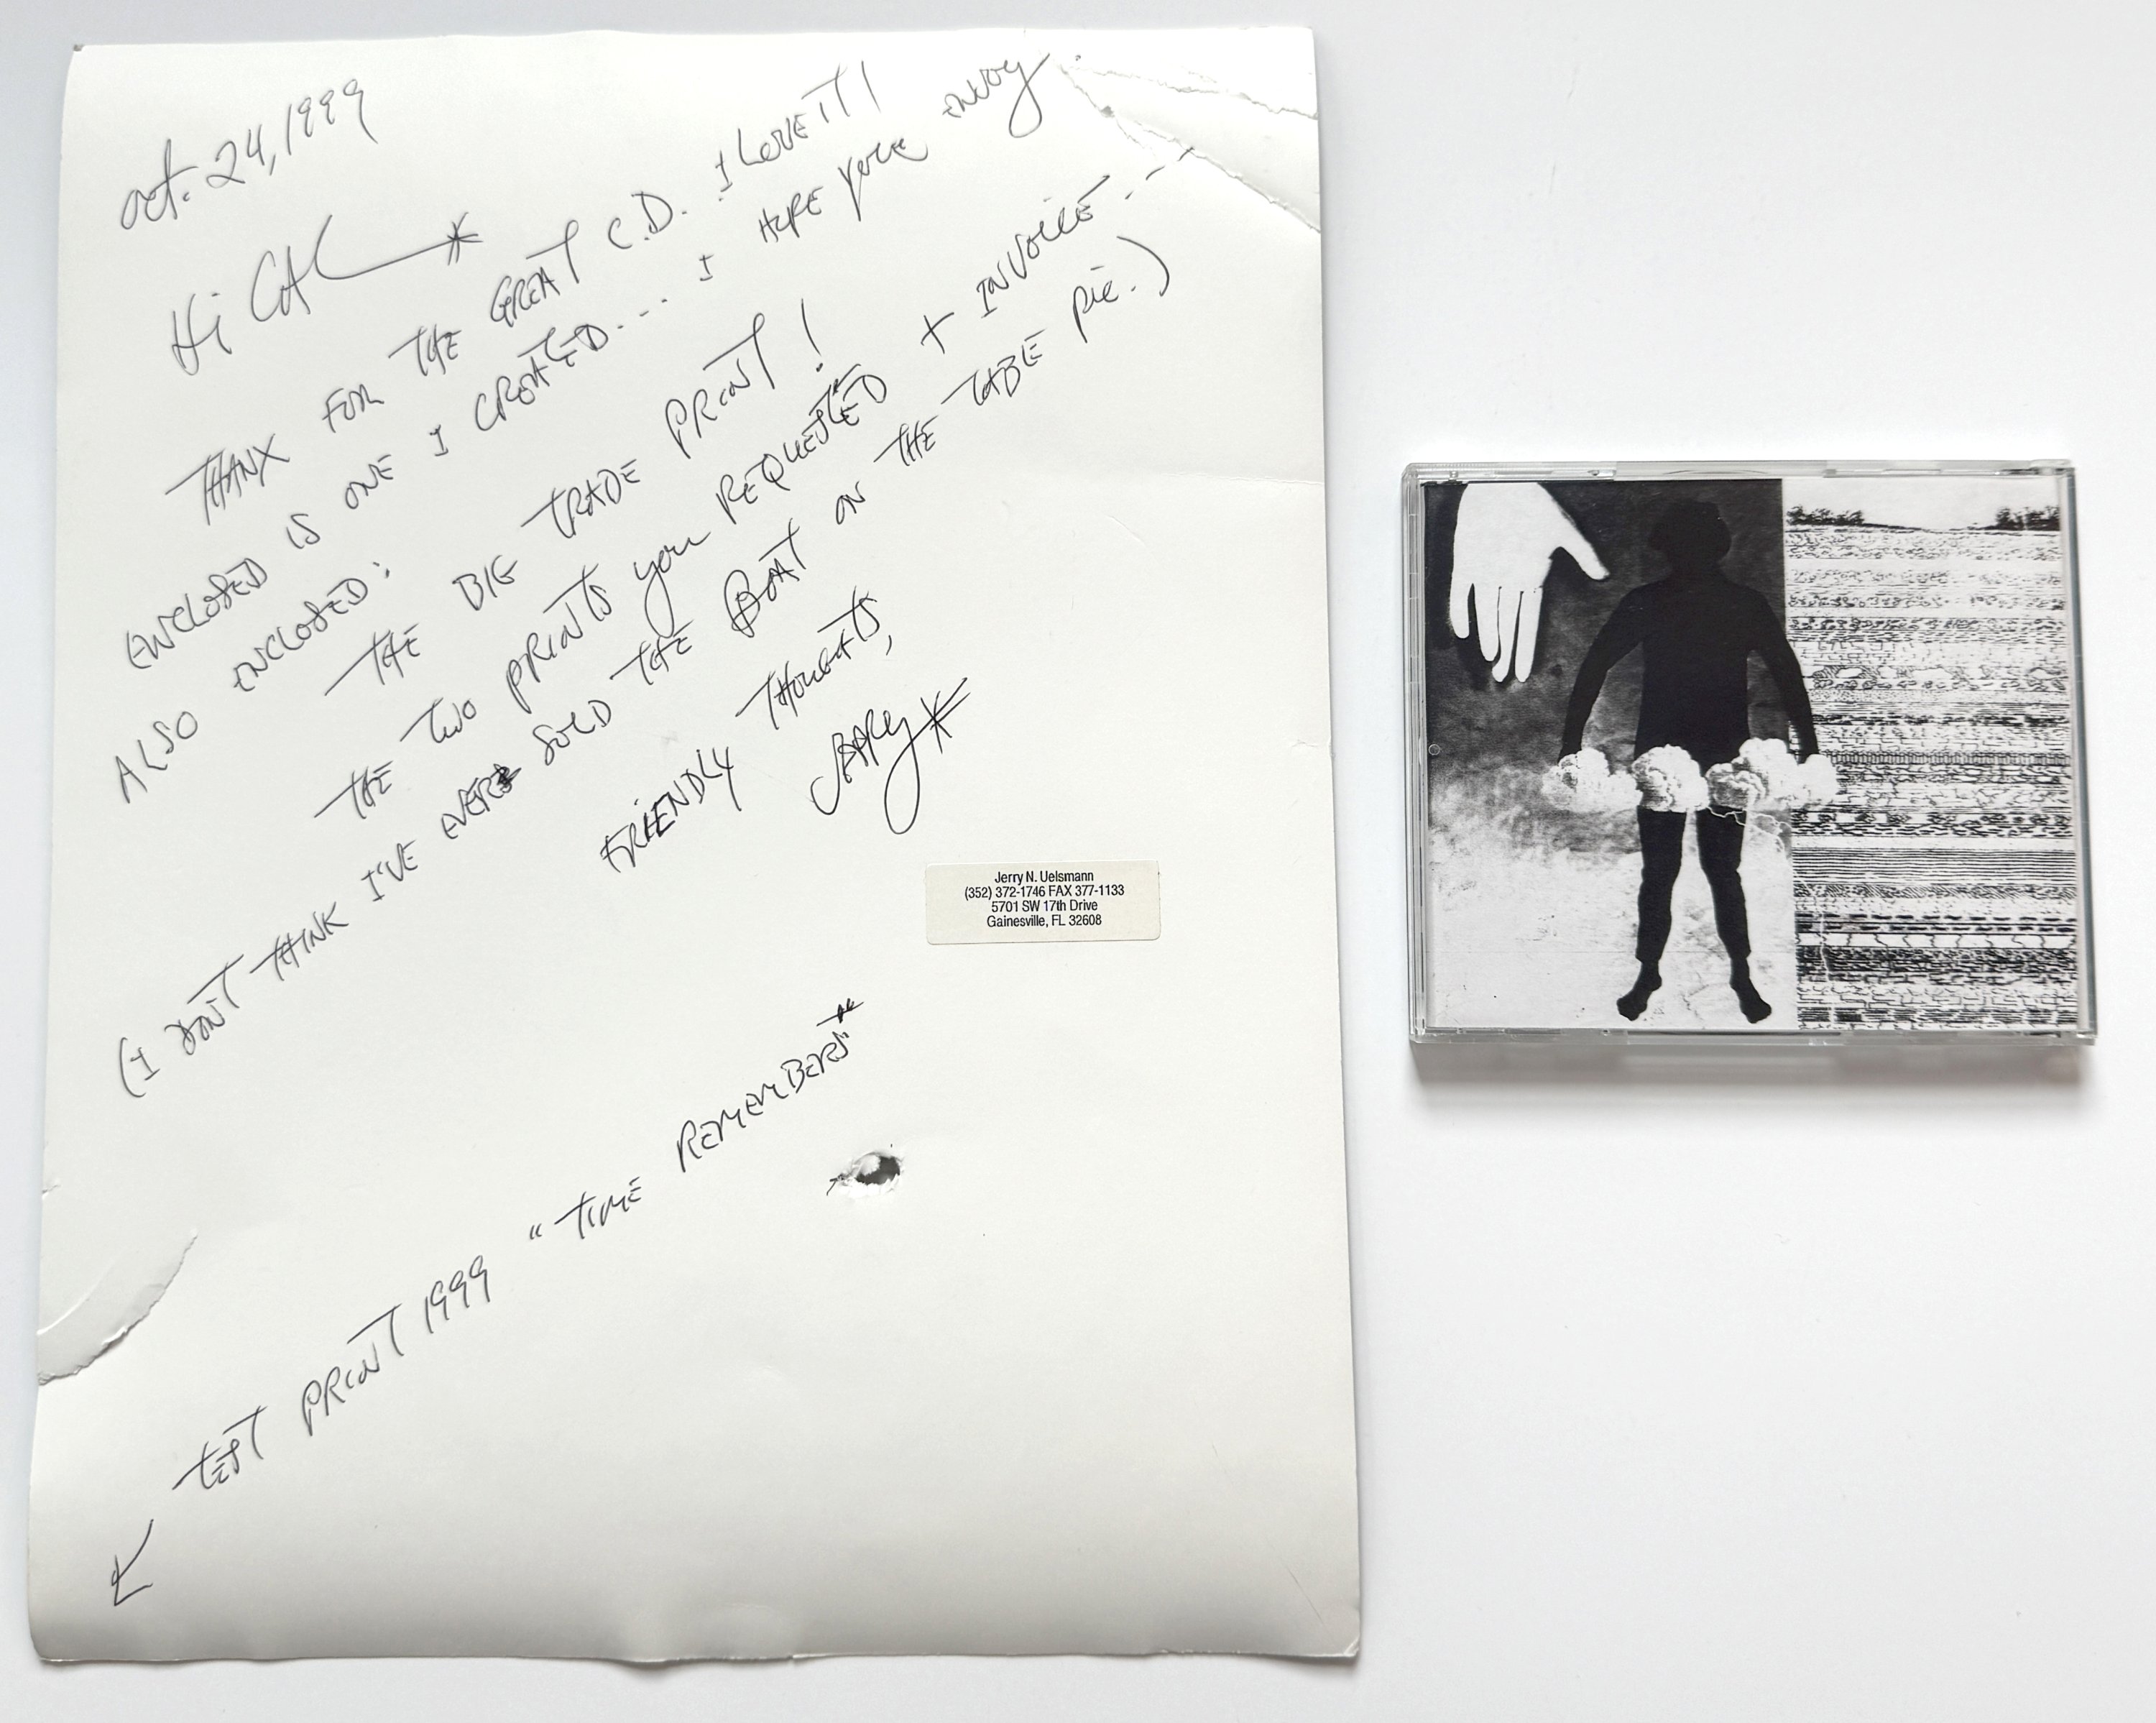 Oct. 24, 1999
Hi CAL
THANX FOR THE GREAT C.D. I LOVE IT!
ENCLOSED IS ONE I CREATED... I HOPE YOU ENJOY.
ALSO ENCLOSED:
THE BIG TRADE PRINT!
THE TWO PRINTS YOU REQUESTED + INVOICE---
(I DON'T THINK I'VE EVER SOLD THE BOAT ON THE TABLE PIC.)
FRIENDLY THOUGHTS,
JERRY*
Jerry N. Uelsmann
(352) 372-1746 FAX 377-1133
5701 SW 17th Drive
Gainesville, FL 32608
TEST PRINT 1999 "TIME REMEMBERS"